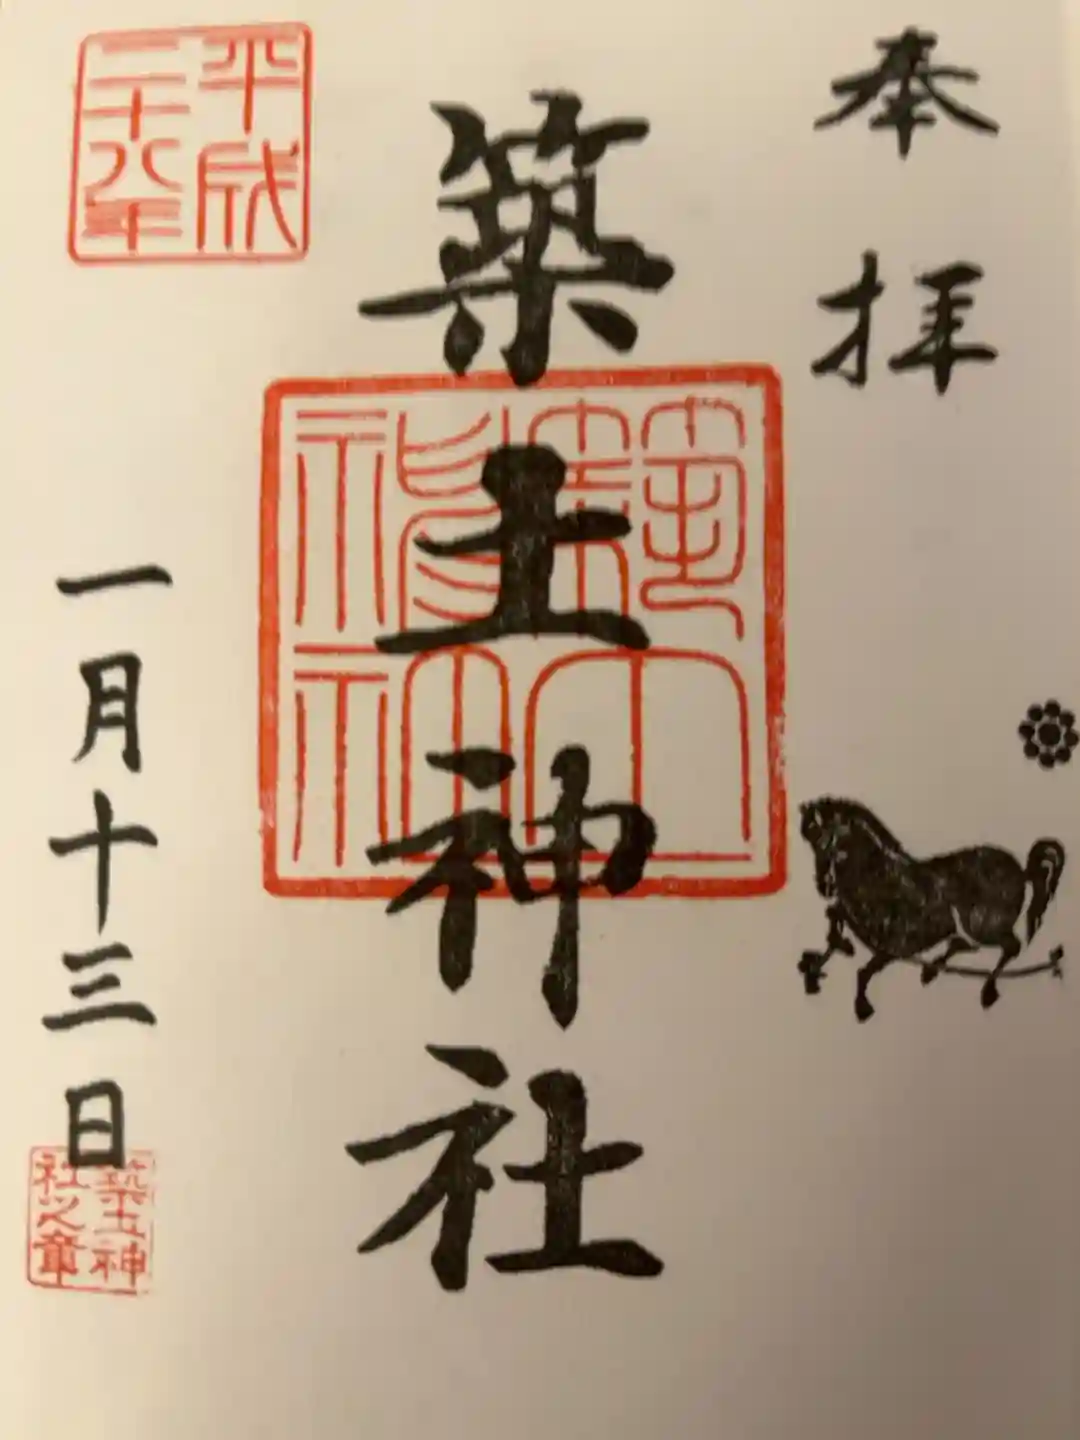 奉拝
築土神社
平成
二十八年
一月十三日
築土神
社之章